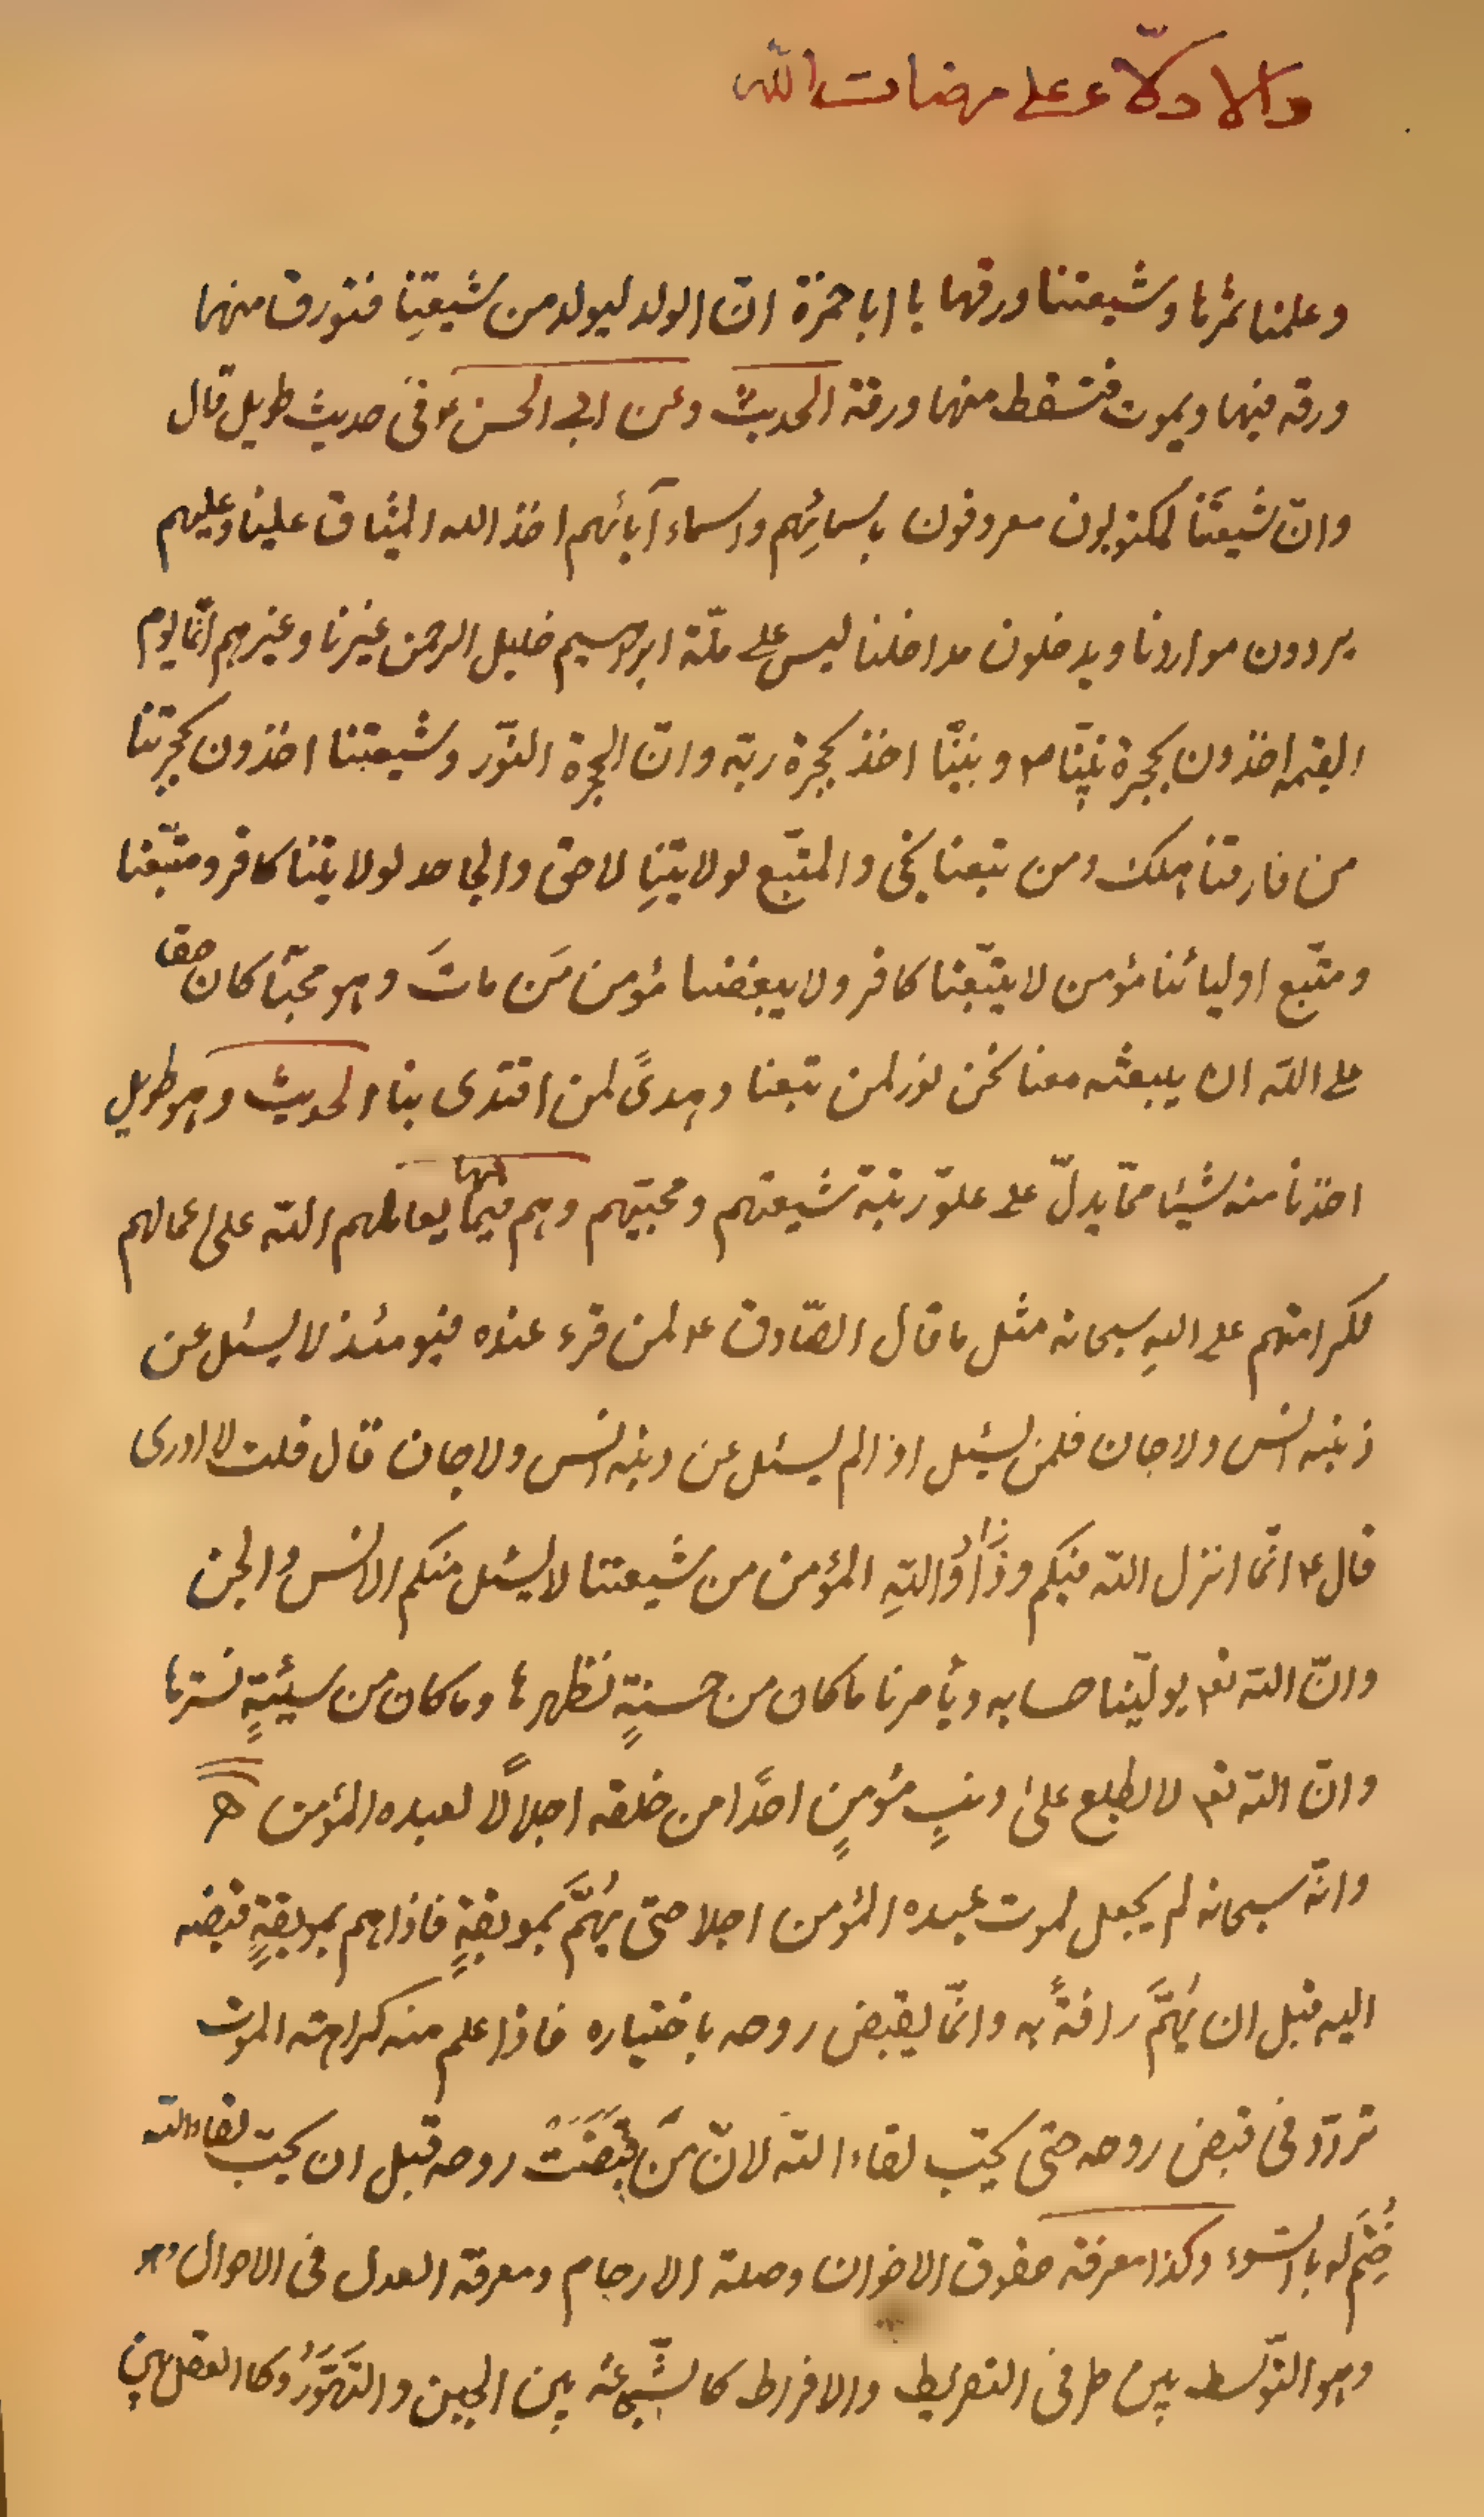 والادلّاء على مرضات الله
وعلمنا ثمرها وشيعتنا ورقها يا ابا حمزة انّ الولد ليولد من شيعتِنا فتورق منها
ورقه فيها ويموت فتسقط منها ورقة الحديث وعن ابي الحسن ع في حديث طويل قال
وانّ شيعتَنا لمكتوبون معروفون باسمائِهم واسماء آبائهم اخذ الله الميثاق علينا وعليهم
يردون مواردنا ويدخلون مداخلنا ليس على ملّة ابرهيم خليل الرحمن غيرنا وغيرهم انّا يوم
القيمه اخذون بحجزة نبيّنا ص ونبيّنا اخذ بحجزة ربّه وانّ الحجزة النوّر وشيعتنا اخذون بحجزتنا
من فارقنا هلك ومن تبعنا نجى والمتّبع لولايتِنا لاحق والجاحد لولايتنا كافر ومتّبعنا
ومتّبع اوليائنا مؤمن لا يتّبعنا كافر ولا يبغضنا مؤمن مَن ماتَ وهو محبّنا كان حقا
على الله ان يبعثه معنا نحن نور لمن تبعنا وهدىً لمن اقتدى بنا الحديث وهو طويل
اخذنا منه شيئا ممّا يدلّ على علوّ رتبة شيعتهم ومحبّيهم وهم فيما يعاملهم الله على اعمالهم
لكرامتهم على اللهِ سبحانه مثل ما قال الصّادق ع لمن قرء عنده فيومئذ لا يسئل عن
ذنبه انس ولا جان فلمن يسئل اذا لم يسئل عن ذنبه انس ولا جان قال قلت لا ادرى
قال ع انّما انزل الله فيكم وذا واللهِ المؤمن من شيعتنا لا يسئل منكم الانس والجن
وانّ الله تعم يولّينا حسابه ويأمرنا ما كان من حسنةٍ نظهرها وما كان من سيّئةٍ نسترها
وانّ الله تعم لا يطلع على ذنبِ مؤمنٍ احدًا من خلقه اجلالًا لعبده المؤمن
وانّه سبحانه لم يجعل لموت عبده المؤمن اجلا حتى يُهمَّ بموبقةٍ فاذا هم بموبقةٍ قبضه
اليه قبل ان يُهمَّ رافةً به وانّما يقبض روحه باختياره فاذا علم منه كراهته الموت
تردّد في قبض روحه حتى يحبّ لقاء الله لانّ مَن قبضَتْ روحه قبل ان يحبّ لقاء الله
خُتِمَ له بالسّوء وكذا معرفة حقوق الاخوان وصلة الارحام ومعرفة العدل في الاحوال
وهو التوّسط بين طرفى التفريط والافراط كالشّجاعة بين الجبن والتهوّر وكالعقل بين